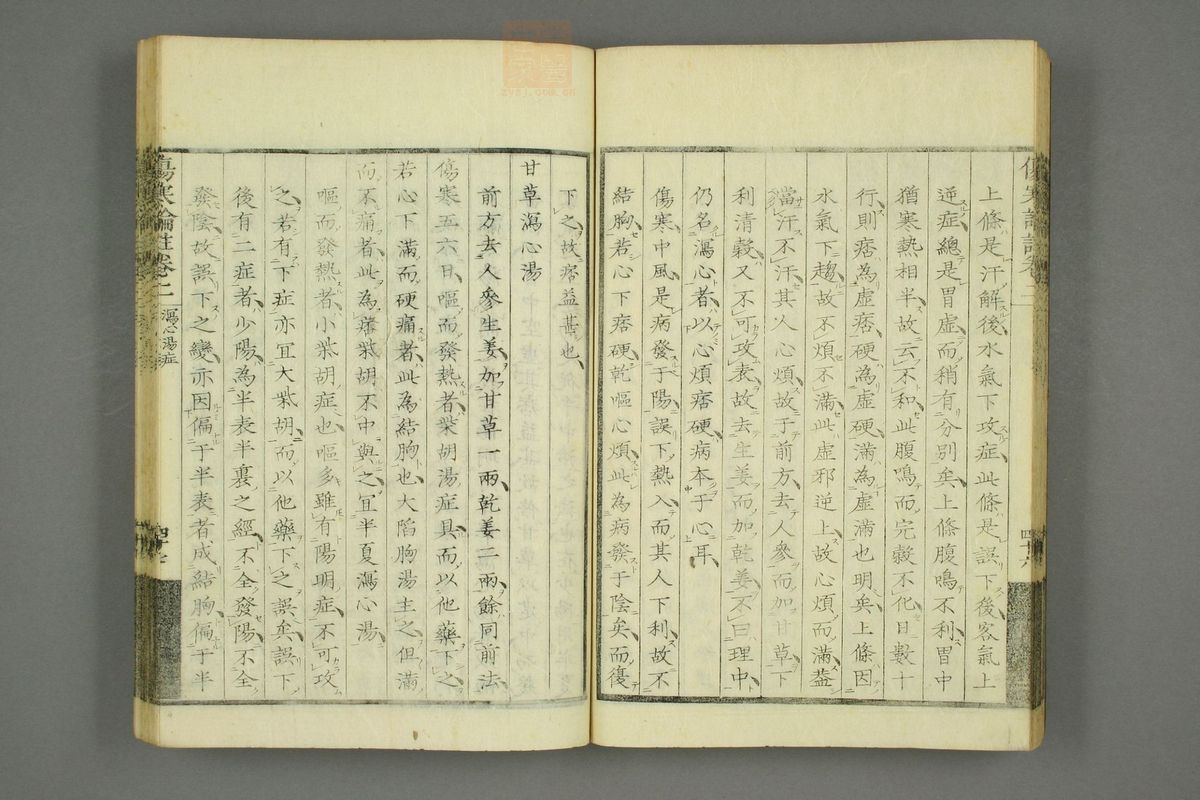 上條是汗解後水氣下攻症此條是誤下後客氣上
逆症總是胃虛而稍有分別矣上條腹鳴不利胃中
猶寒熱相半故云不和此腹鳴而完穀不化日數十
行則痞為虛痞硬為虛硬滿為虛滿也明矣上條因
水氣下趨故不煩不滿此虛邪逆上故心煩而滿蓋
當汗不汗其人心煩故于前方去人參而加甘草下
利清穀又不可攻表故去生姜而加乾姜不曰理中
仍名瀉心者以心煩痞硬病本于心耳
傷寒中風是病發于陽誤下熱入而其人下利故不
結胸若心下痞硬乾嘔心煩此為病發于陰矣而復
下之故痞益甚也
甘草瀉心湯
前方去人參生姜加甘草一兩乾姜二兩餘同前法
傷寒五六日嘔而發熱者柴胡湯症具而以他藥下之
若心下滿而硬痛者此為結胸也大陷胸湯主之但滿
而不痛者此為痞柴胡不中與之宜半夏瀉心湯
嘔而發熱者小柴胡症也嘔多雖有陽明症不可攻
之若有下症亦宜大柴胡而以他藥下之誤矣誤下
後有二症者少陽為半表半裏之經不全發陽不全
發陰故誤下之變亦因偏于半表者成結胸偏于半
傷寒論註卷二 瀉心湯症